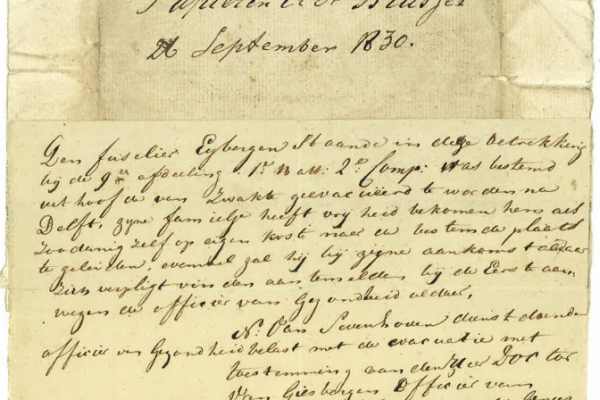 Papieren uit Brussel
26 September 1830.
Den fuselier Eybergen Staande in deze betrekking
bij de 9de afdeeling 1e Batt: 2e Comp: was bestemd
uit hoofde van Zwakte geevacuëerd te worden na
Delft, zyne familje heeft vrij heid bekomen hem als
Zoodanig zelf op eigen kost naar de bestemde plaats
te geleiden, evenwel zal hij bij zijne aankomst aldaar
Zich verpligt vinden aan te melden bij de Eerst aan
wezen de officier van Gezondheid aldaar,
N: Van Sevenhoven dienst doende
officier van Gezondheid belast met de evacuatie met
toestemming van den Heer Doctor
Van Giesbergen Officier van